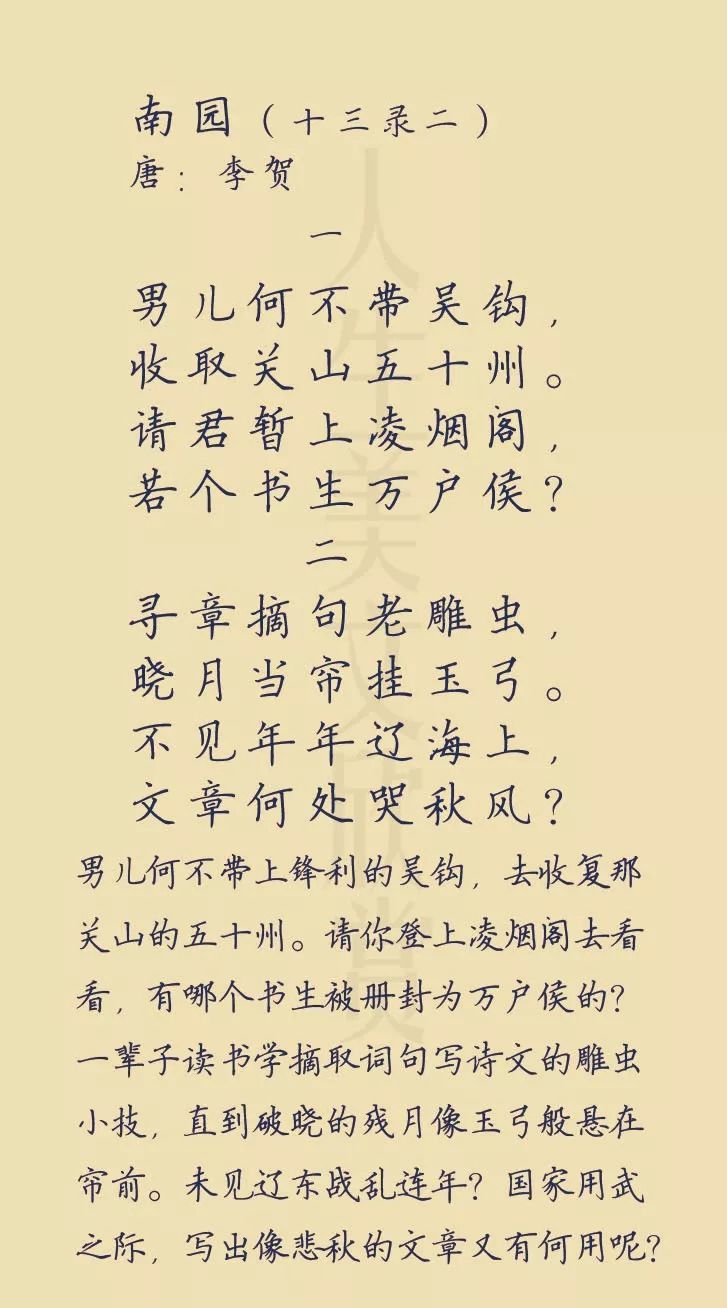 南园（十三录二）
唐：李贺
一
男儿何不带吴钩，
收取关山五十州。
请君暂上凌烟阁，
若个书生万户侯？
二
寻章摘句老雕虫，
晓月当帘挂玉弓。
不见年年辽海上，
文章何处哭秋风？
男儿何不带上锋利的吴钩，去收复那
关山的五十州。请你登上凌烟阁去看
看，有哪个书生被册封为万户侯的？
一辈子读书学摘取词句写诗文的雕虫
小技，直到破晓的残月像玉弓般悬在
帘前。未见辽东战乱连年？国家用武
之际，写出像悲秋的文章又有何用呢？
人生美文欣赏